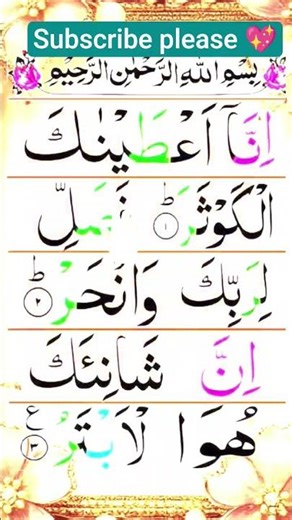 Subscribe please 💖
بِسْمِ اللهِ الرَّحْمٰنِ الرَّحِيْمِ
اِنَّاۤ اَعْطَيْنٰكَ
الْكَوْثَرَ ؕ ۱ فَصَلِّ
لِرَبِّكَ وَانْحَرْ ؕ ۲
اِنَّ شَانِئَكَ
هُوَا لْاَبْتَرُ ع ۳